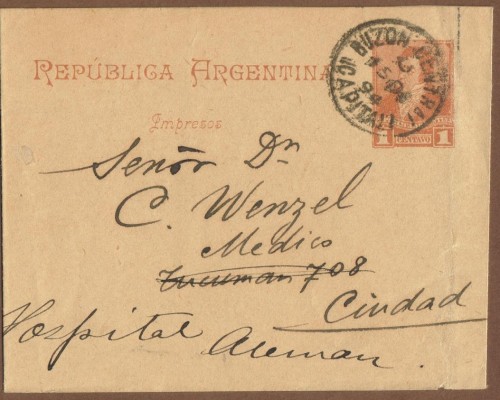 REPÚBLICA ARGENTINA
Impresos
BUZON CENTRAL
(CAPITAL)
1 CENTAVO 1
Señor Dn
C. Wenzel
Medico
Tucuman 708
Ciudad
Hospital Aleman.